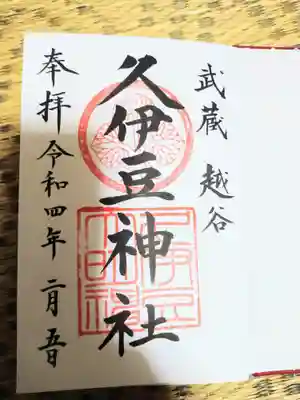 武蔵 越谷
久伊豆神社
奉拝 令和四年 二月五日